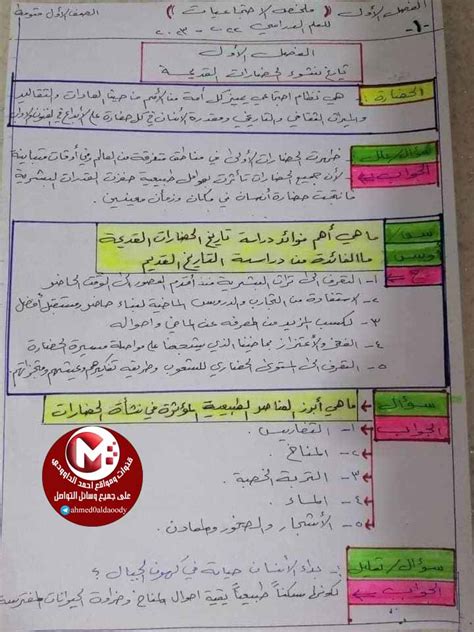 الفصل الأول (( ملخص الاجتماعيات )) الصف الأول متوسط
-١- للعام الدراسي ٢٠٢٢ - ٢٠٢٣
الفصل الأول
تاريخ نشوء الحضارات القديمة
الحضارة : هي نظام اجتماعي يميز كل أمة عن الأمم من حيث العادات والتقاليد
والميراث الثقافي والتاريخي ومقدرة الإنسان في كل حضارة على الإبداع في الفنون
سؤال / علل - ظهرت الحضارات الأولى في مناطق متفرقة من العالم وفي أوقات متباينة
الجواب - لأن جميع الحضارات تأثرت بعوامل طبيعية حفزت القدرات البشرية
فأنتجت حضارة إنسان في مكان وزمان معينين .
س ما هي أهم فوائد دراسة تاريخ الحضارات القديمة
ما الفائدة من دراسة التاريخ القديم
ج ١- التعرف الى تراث البشرية منذ أقدم العصور الى الوقت الحاضر
٢- الاستفادة من التجارب والدروس الماضية لبناء حاضر ومستقبل أفضل
٣- لكسب المزيد من المعرفة عن الماضي وأحواله
٤- الفخر والاعتزاز بماضينا الذي يشجعنا على مواصلة مسيرة الحضارة
٥- التعرف الى المستوى الحضاري للشعوب وطريقة تفكيرهم وعيشهم ومنجزاتهم.
سؤال ما هي أبرز العناصر الطبيعية المؤثرة في نشأة الحضارات
الجواب ١- التضاريس .
٢- المناخ .
٣- التربة الخصبة
٤- الماء .
٥- الأشجار والصخور والمعادن .
قنوات ومواقع احمد الداوودي
على جميع وسائل التواصل
ahmed0aldaoody
سؤال / تعليل - بدء الأنسان حياته في كهوف الجبال ؟
الجواب لكونها سكناً طبيعياً يقيه أهوال المناخ وضراوة الحيوانات المفترسة